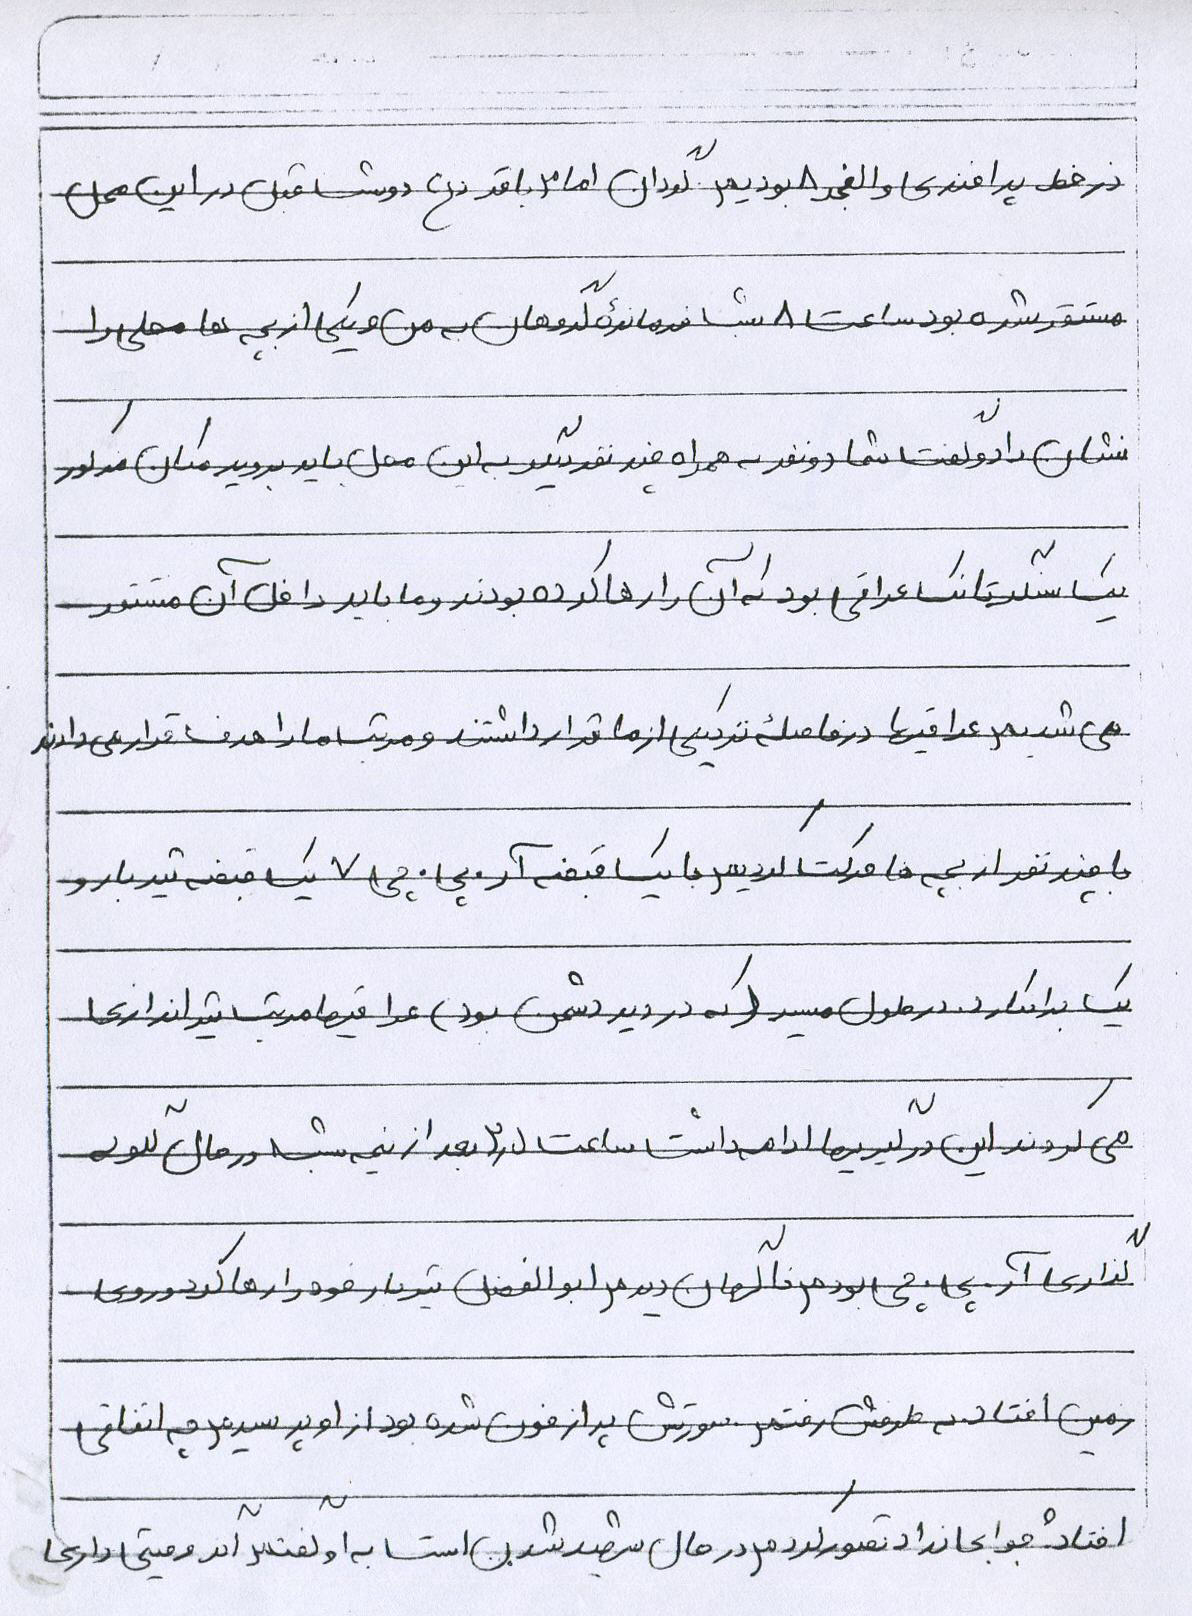 در خط پدافندی والفجر ۸ بودیم. گردان امام باقر (ع) دو شب قبل در این محل
مستقر شده بود ساعت ۸ شب فرماندهٔ گروهان به من و یکی از بچه ها محلی را
نشان داد و گفت شما دو نفر به همراه چند نفر دیگر به این محل باید بروید مکان مذکور
یک سنگر تانک عراقی بود که آن را رها کرده بودند و ما باید داخل آن مستقر
می شدیم عراقیها در فاصلهٔ نزدیکی از ما قرار داشتند و مرتب ما را هدف قرار می دادند
با چند نفر از بچه ها حرکت کردیم با یک قبضه آر.پی.جی ۷ یک قبضه تیربار و
یک برانکارد. در طول مسیر (که در دید دشمن بود) عراقیها مرتب تیراندازی
می کردند این درگیریها ادامه داشت ساعت ۲٫۱ بعد از نیمه شب در حال گلوله
گذاری آر.پی.جی بودم ناگهان دیدم ابوالفضل تیربار خود را رها کرد و روی
زمین افتاد. به طرفش رفتم. صورتش پر از خون شده بود از او پرسیدم چه اتفاقی
افتاد؟ جوابی نداد تصور کردم در حال شهید شدن است به او گفتم اگر وصیتی داری